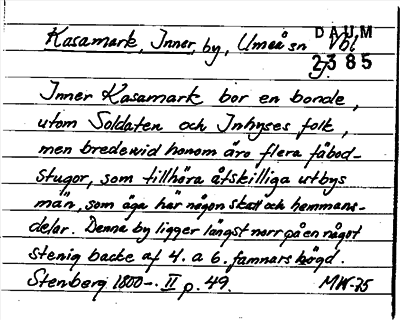 DAUM
Kasamark, Inner, by, Umeå sn Vbl
2385
Inner Kasamark bor en bonde,
utom Soldaten och Inhyses folk,
men bredewid honom äro flera fäbod-
stugor, som tillhöra åtskilliga utbys
män, som äga här någon skatt och hemmans-
delar. Denna by ligger längst norr på en något
stenig backe af 4. a 6. famnars högd.
Stenberg 1800-. II p. 49. MW-75